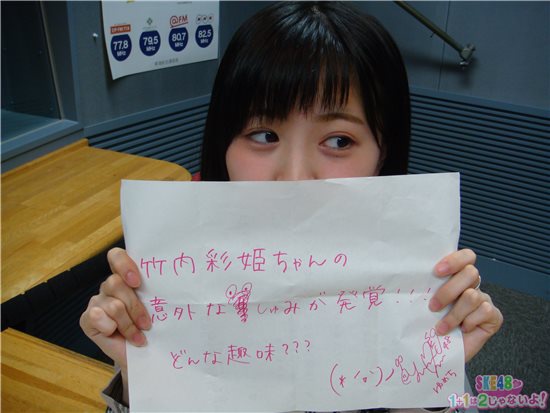 ZIP-FM 77.8
77.8
MHz
79.5
MHz
@FM
80.7
MHz
82.5
MHz
竹内彩姫ちゃんの
意外な しゅみが発覚!!!
どんな趣味???
SKE48
1+1は2じゃないよ!